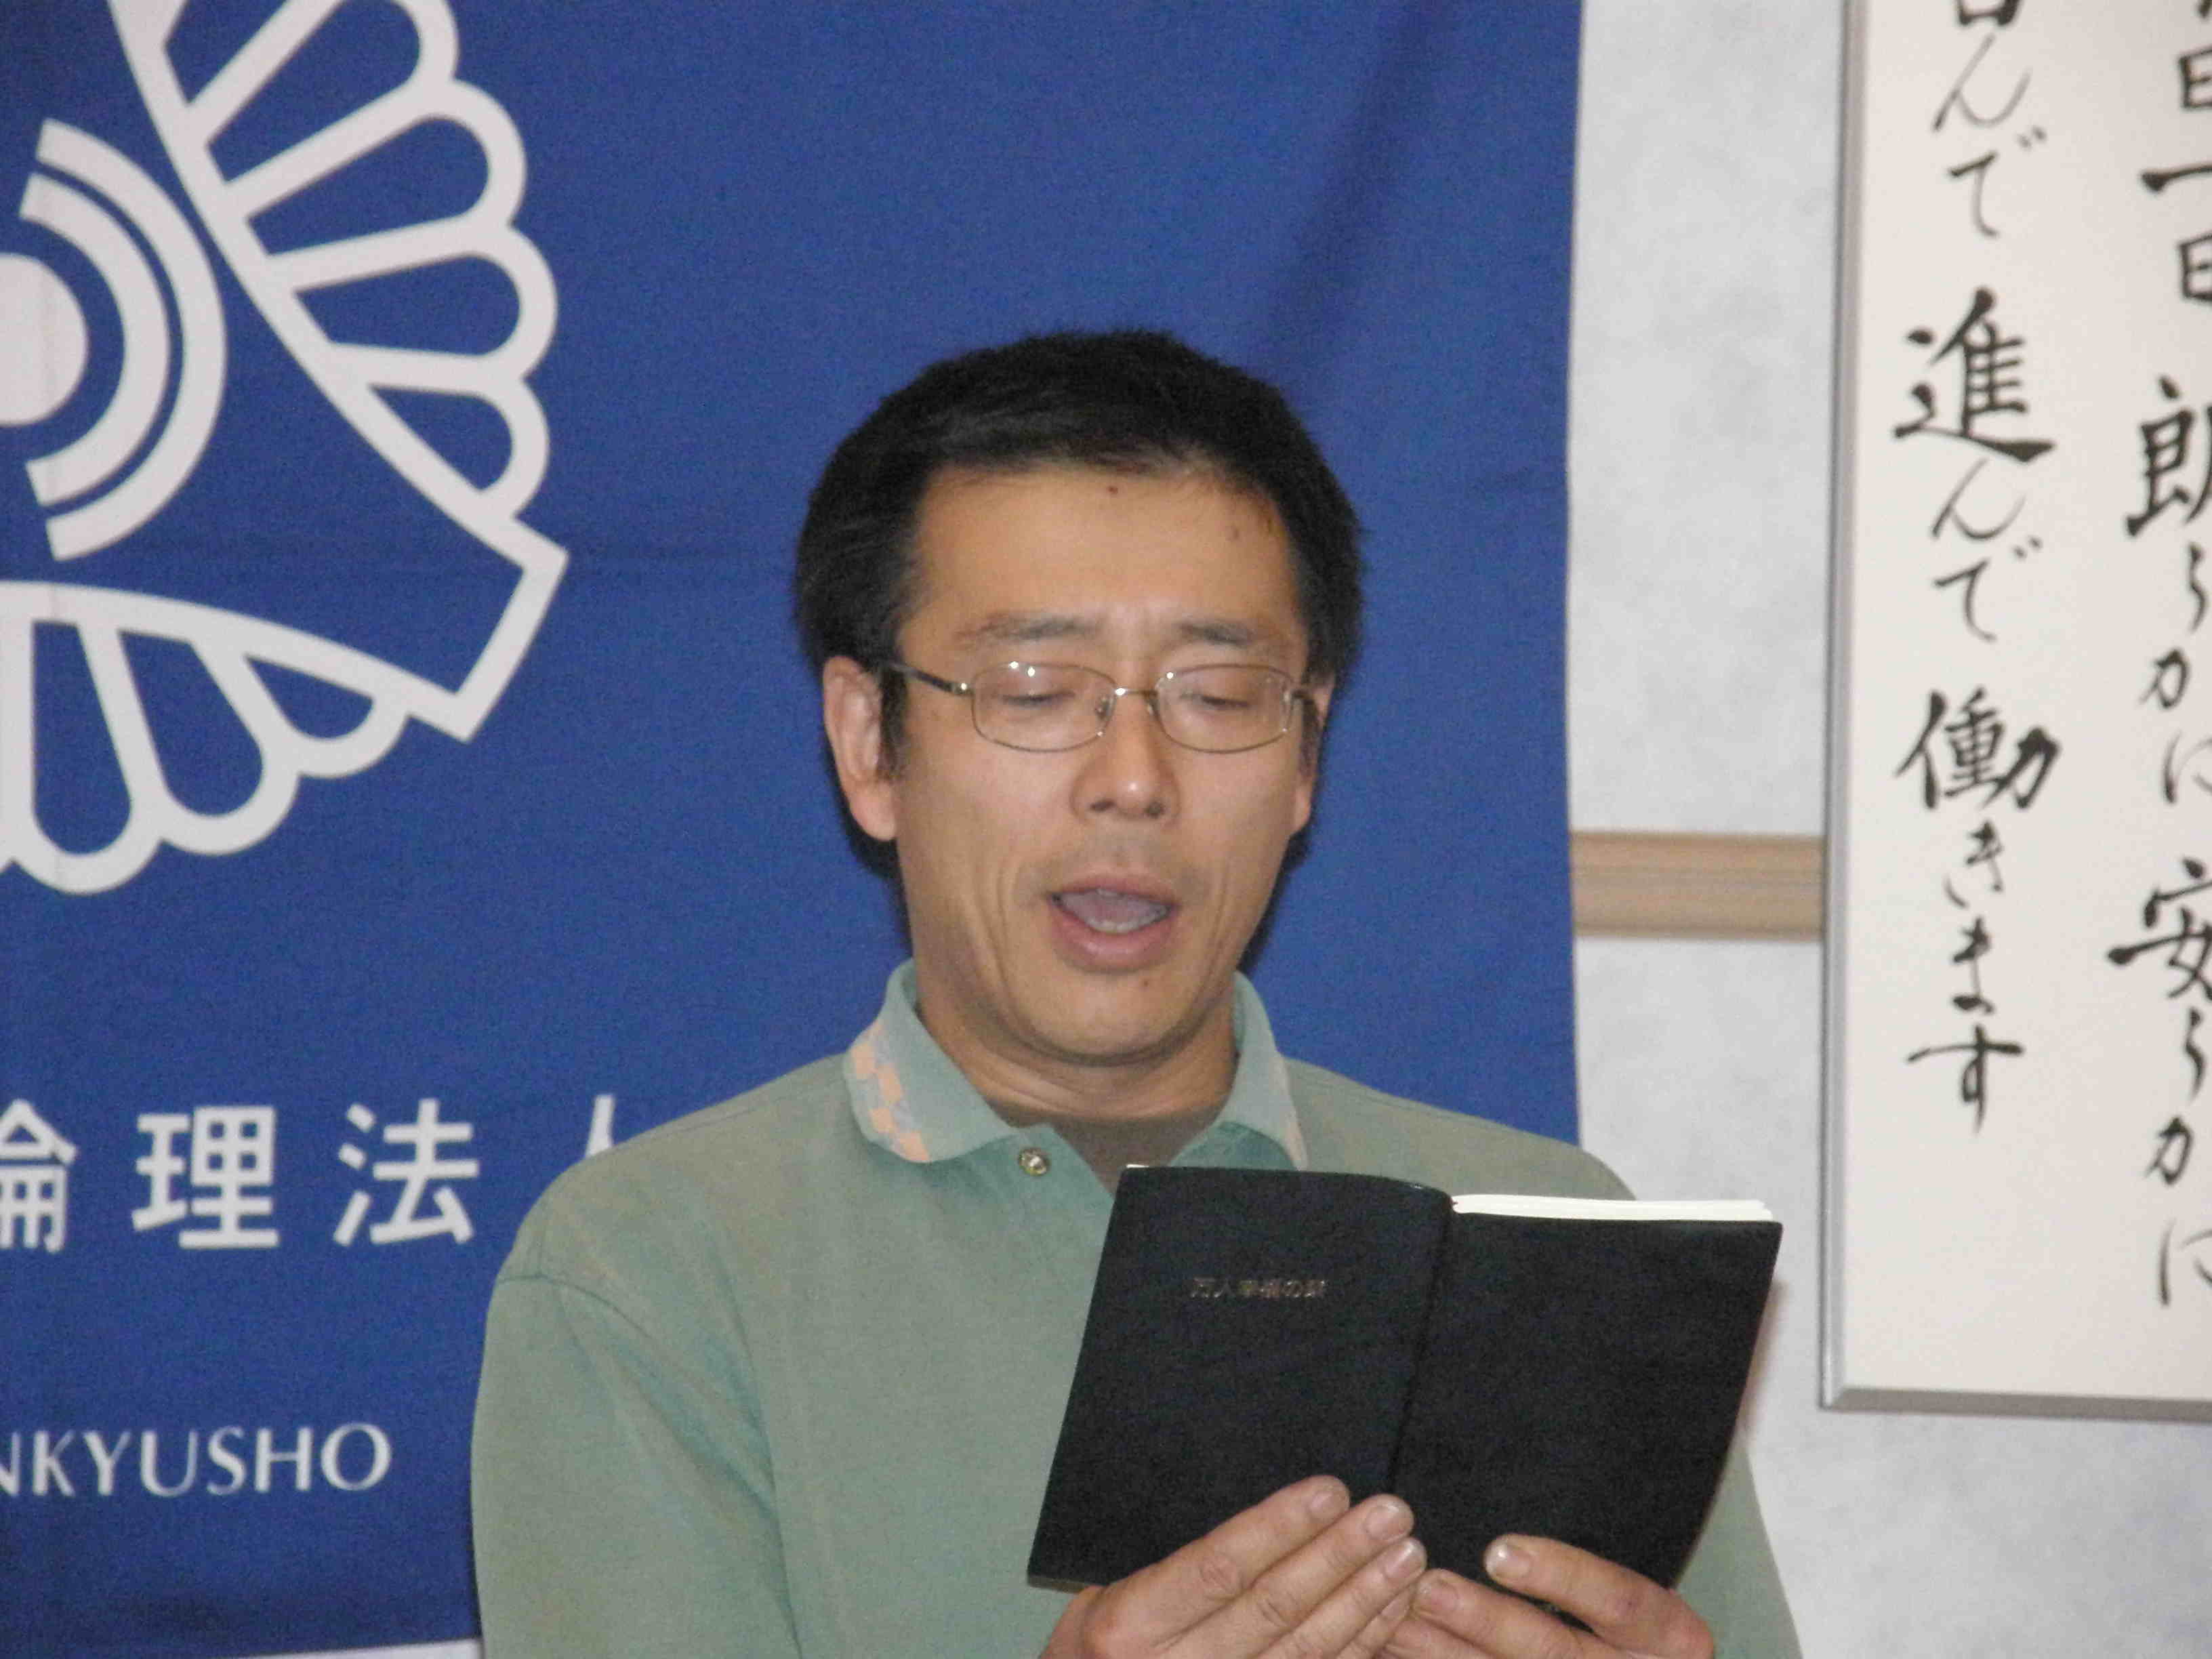 一日 朗らかに 安らかに
んで 進んで 働きます
理法人
NKYUSHO
万人幸福の栞